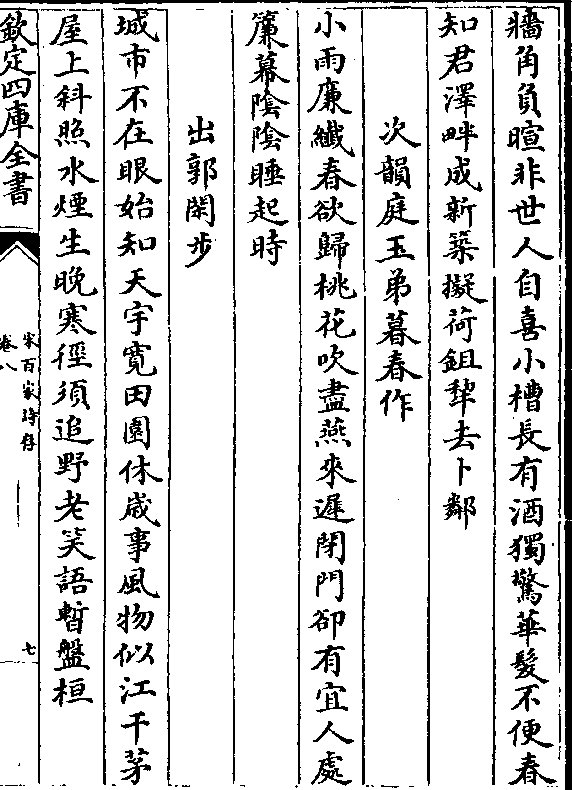 牆角負暄非世人自喜小槽長有酒獨驚華髮不便春
知君澤畔成新築擬荷鉏犂去卜鄰
次韻庭玉弟暮春作
小雨廉纖春欲歸桃花吹盡燕來遲閉門卻有宜人處
簾幕陰陰睡起時
出郭閑步
城市不在眼始知天宇寬田園休歲事風物似江干茅
屋上斜照水煙生晚寒徑須追野老笑語暫盤桓
欽定四庫全書
宋百家詩存
卷八
七